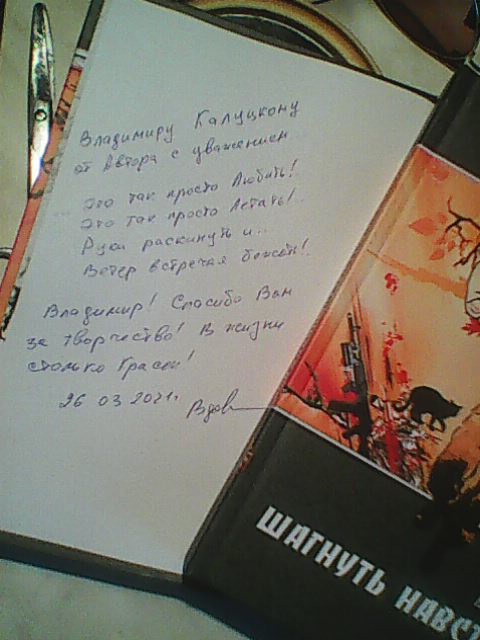 Владимиру Калуцкому
от Автора с уважением...
Это так просто Любить!
Это так просто Летать!..
Руки раскинуть и...
Ветер встречая бежать!..
Владимир! Спасибо Вам
за творчество! В жизни
столько Красок!
26 03 2021г.
ШАГНУТЬ НАВСТ